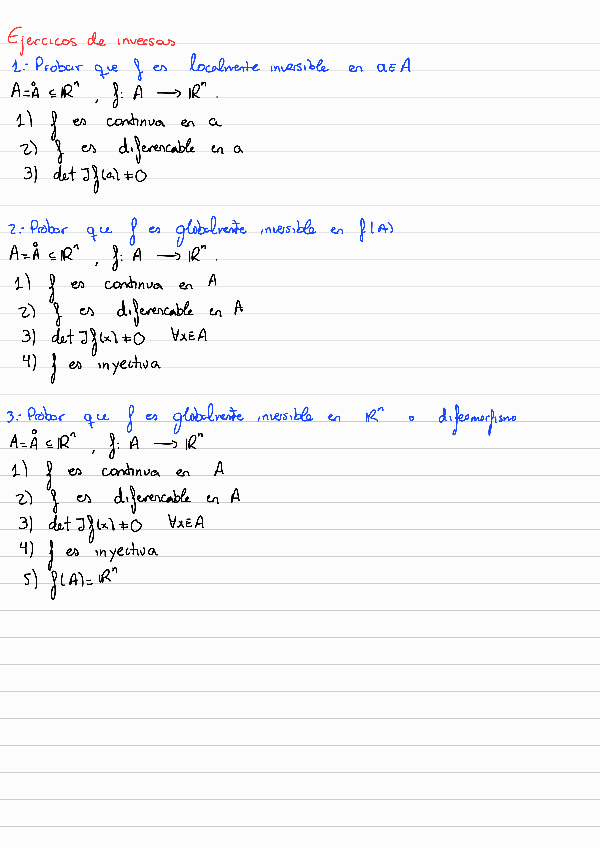 Ejercicos de inversas
1.- Probar que f es localmente inversible en a∈A
A=Å ⊆ ℝⁿ , f: A → ℝⁿ .
1) f es continua en a
2) f es diferencable en a
3) det Jf(a) ≠ 0
2.- Probar que f es globalmente inversible en f(A)
A=Å ⊆ ℝⁿ , f: A → ℝⁿ .
1) f es continua en A
2) f es diferencable en A
3) det Jf(x) ≠ 0 ∀x∈A
4) f es inyectiva
3.- Probar que f es globalmente inversible en ℝⁿ o difeomorfismo
A=Å ⊆ ℝⁿ , f: A → ℝⁿ
1) f es continua en A
2) f es diferencable en A
3) det Jf(x) ≠ 0 ∀x∈A
4) f es inyectiva
5) f(A) = ℝⁿ